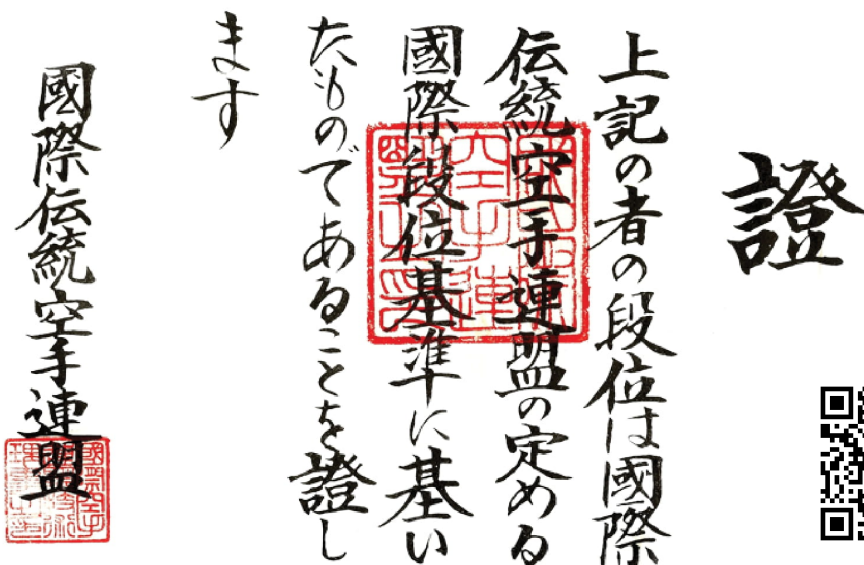 證
上記の者の段位は國際
伝統空手連盟の定める
國際段位基準に基い
たものであることを證し
ます
國際伝統空手連盟